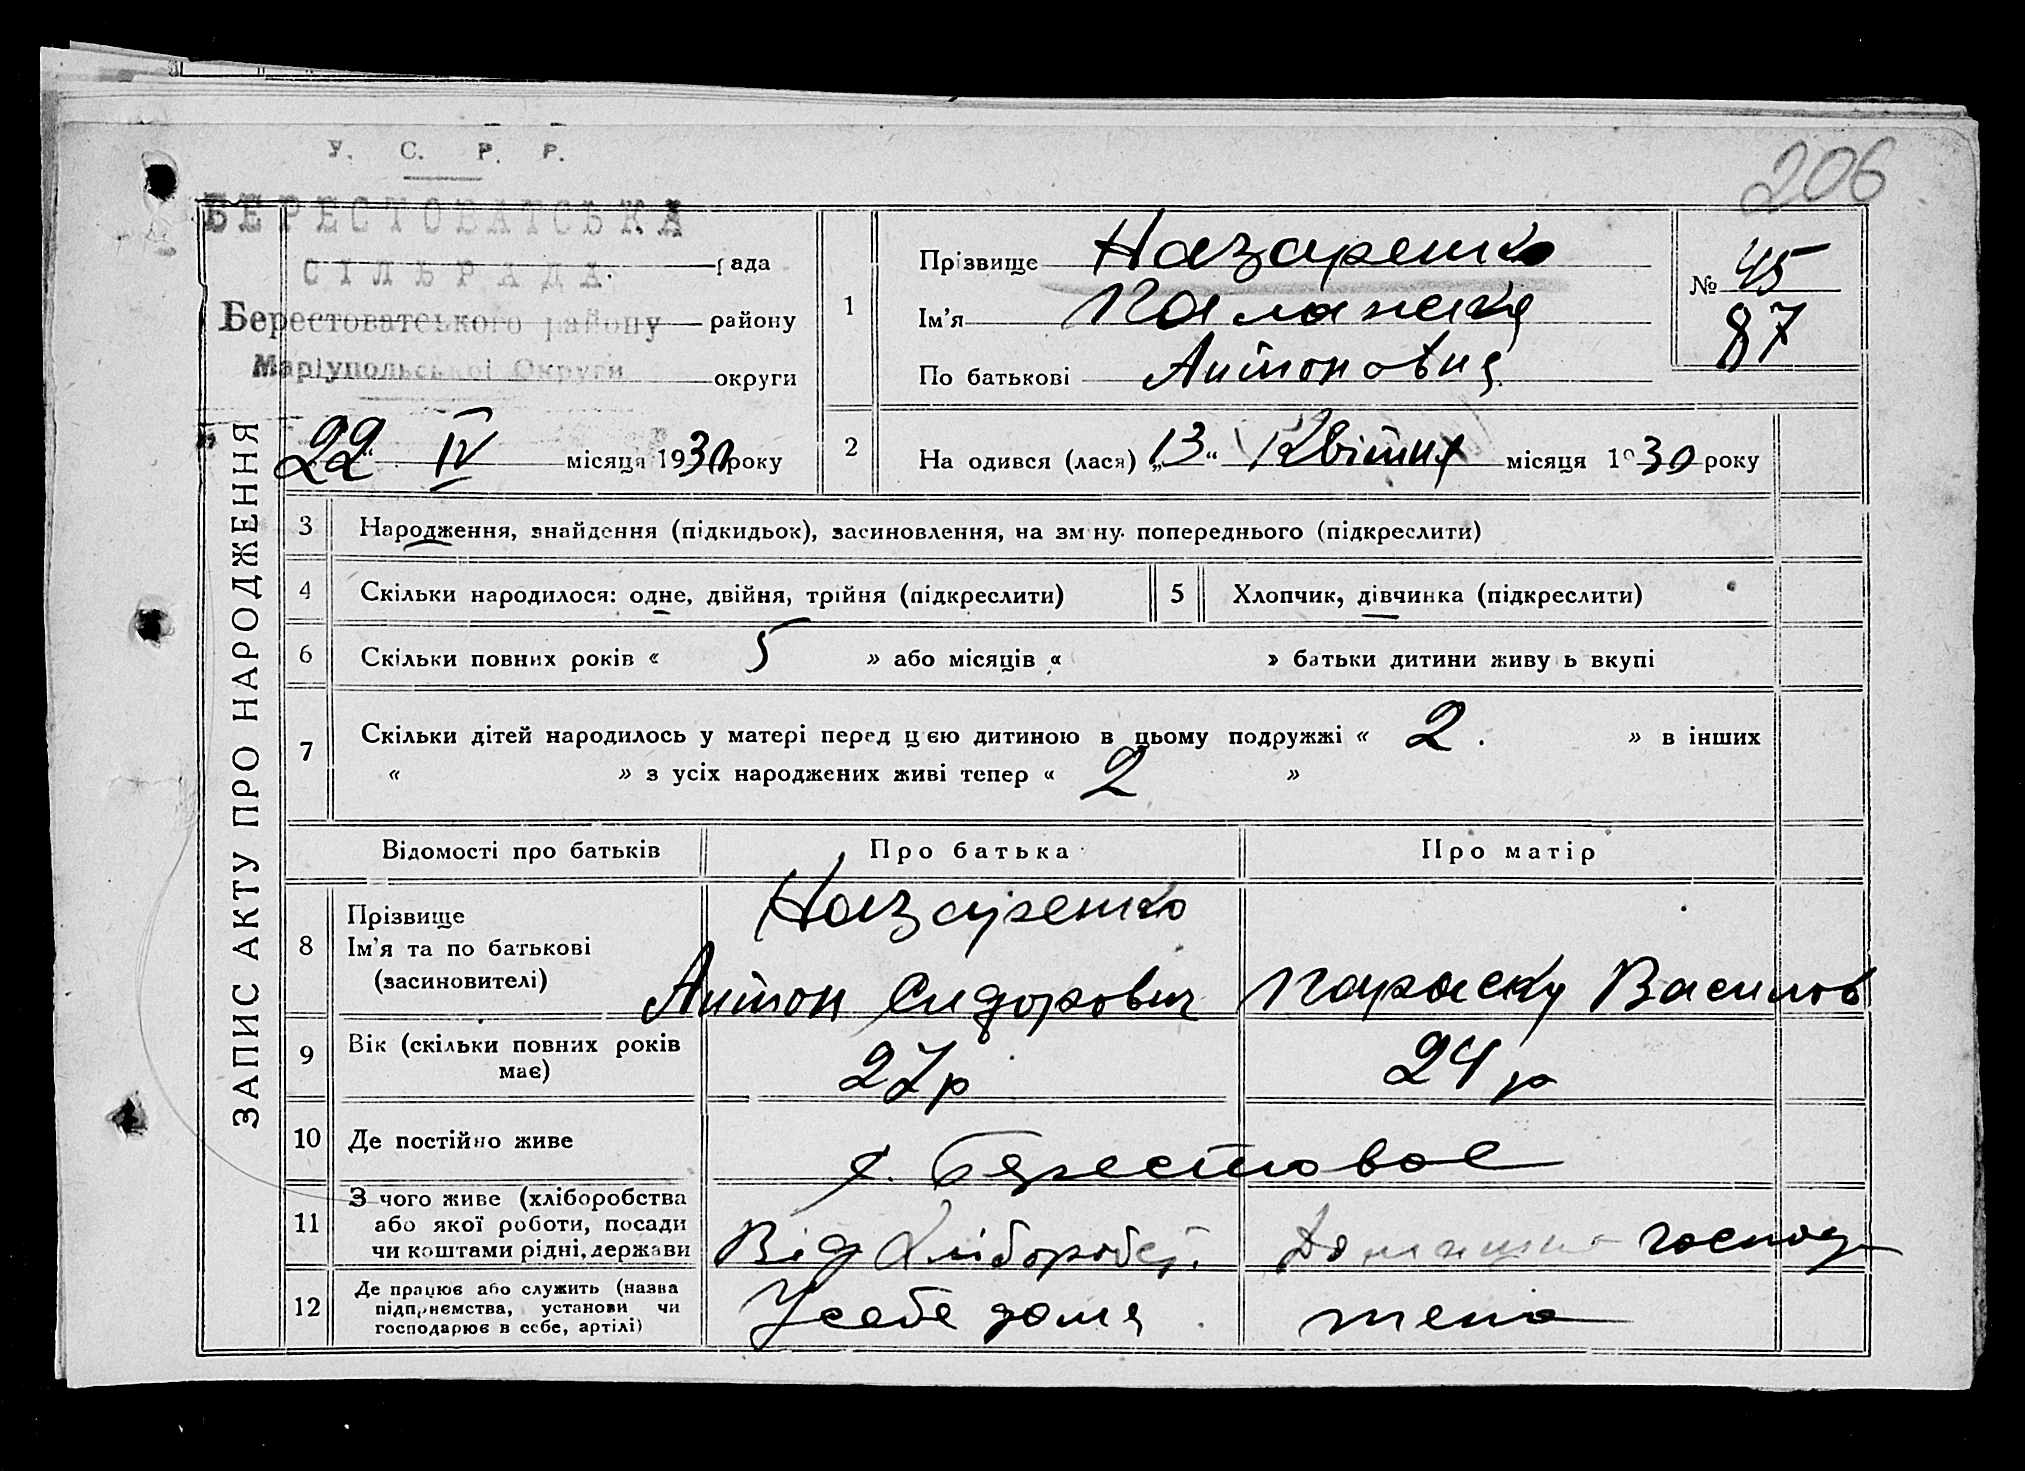 206
У. С. Р. Р.
БЕРЕСТОВАТСЬКА
СІЛЬРАДА.
рада
Берестоватського району
району
Маріупольської Округи
округи
22 IV місяця 1930 року
ЗАПИС АКТУ ПРО НАРОДЖЕННЯ
1
Прізвище Назаренко
Ім'я
По батькові Антоновна
№ 45
87
2
На одився (лася) „13“ Квітня місяця 1930 року
3 Народження, знайдення (підкидьок), засиновлення, на зм ну. попереднього (підкреслити)
4 Скільки народилося: одне, двійня, трійня (підкреслити)
5 Хлопчик, дівчинка (підкреслити)
6 Скільки повних років « 5 » або місяців « » батьки дитини живу ь вкупі
7 Скільки дітей народилось у матері перед цією дитиною в цьому подружжі « 2. » в інших
« » з усіх народжених живі тепер « 2 »
Відомості про батьків Про батька Про матір
8 Прізвище
Ім'я та по батькові
(засиновителі)
Назаренко
Антон Сидорович
Параску Василов
9 Вік (скільки повних років
має)
27р
24 р
10 Де постійно живе
х. Берестовое
11 З чого живе (хліборобства
або якої роботи, посади
чи коштами рідні, держави
Від Хлібороб.
Домашнє господ
12 Де працює або служить (назва
підприємства, установи чи
господарює в себе, артілі)
У себе дома
тепо